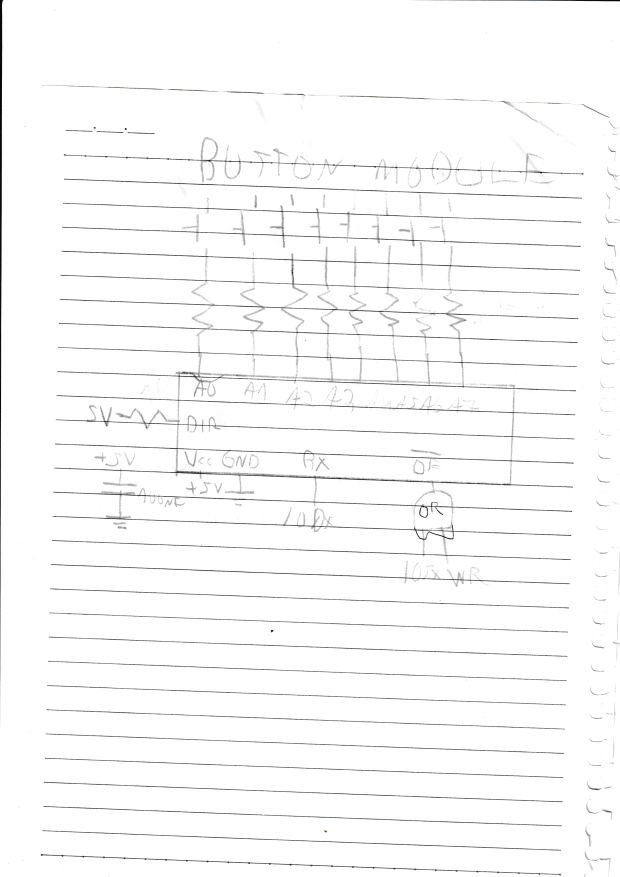 BUTTON MODULE
A0 A1 A2 A3 A4 A5 A6 A7
5V DIR
+5V Vcc GND RX OE
100NF +5V
OR
WR